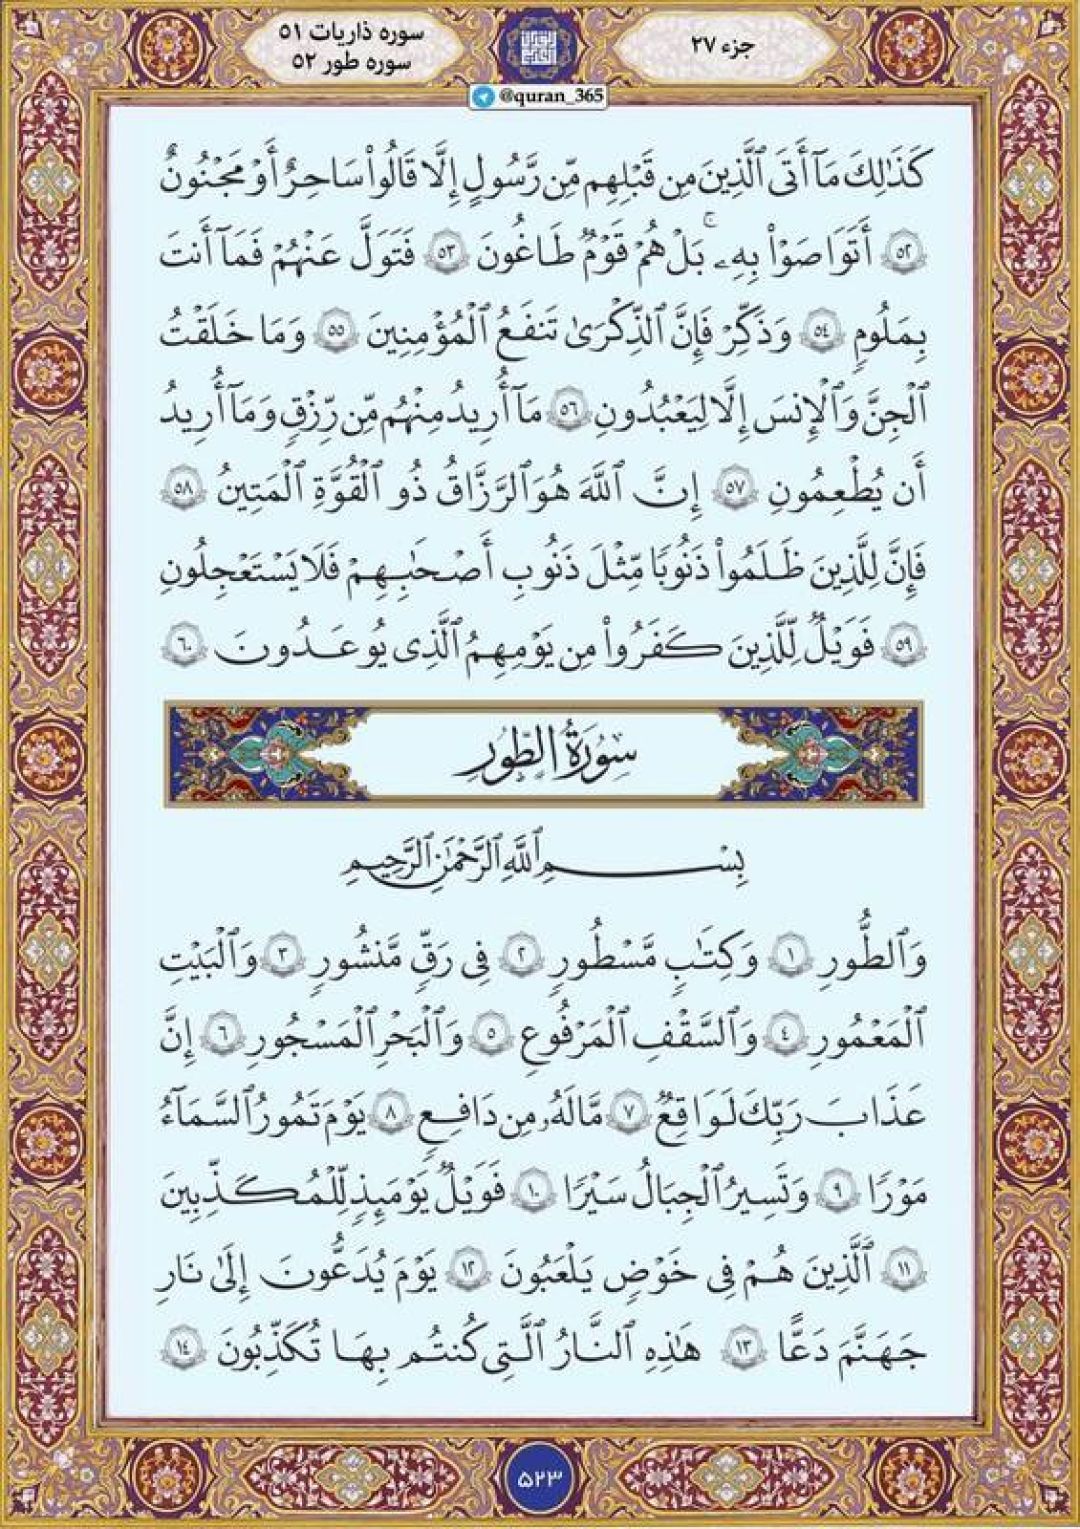 جزء ۲۷
سوره ذاریات ۵۱
سوره طور ۵۲
@quran_365
كَذَٰلِكَ مَآ أَتَى ٱلَّذِينَ مِن قَبْلِهِم مِّن رَّسُولٍ إِلَّا قَالُوا۟ سَاحِرٌ أَوْ مَجْنُونٌ
٥٢ أَتَوَاصَوْا۟ بِهِۦ ۚ بَلْ هُمْ قَوْمٌ طَاغُونَ ٥٣ فَتَوَلَّ عَنْهُمْ فَمَآ أَنتَ
بِمَلُومٍ ٥٤ وَذَكِّرْ فَإِنَّ ٱلذِّكْرَىٰ تَنفَعُ ٱلْمُؤْمِنِينَ ٥٥ وَمَا خَلَقْتُ
ٱلْجِنَّ وَٱلْإِنسَ إِلَّا لِيَعْبُدُونِ ٥٦ مَآ أُرِيدُ مِنْهُم مِّن رِّزْقٍ وَمَآ أُرِيدُ
أَن يُطْعِمُونِ ٥٧ إِنَّ ٱللَّهَ هُوَ ٱلرَّزَّاقُ ذُو ٱلْقُوَّةِ ٱلْمَتِينُ ٥٨
فَإِنَّ لِلَّذِينَ ظَلَمُوا۟ ذَنُوبًا مِّثْلَ ذَنُوبِ أَصْحَٰبِهِمْ فَلَا يَسْتَعْجِلُونِ
٥٩ فَوَيْلٌ لِّلَّذِينَ كَفَرُوا۟ مِن يَوْمِهِمُ ٱلَّذِى يُوعَدُونَ ٦٠
سُورَةُ الطُّورِ
بِسْمِ ٱللَّهِ ٱلرَّحْمَٰنِ ٱلرَّحِيمِ
وَٱلطُّورِ ١ وَكِتَٰبٍ مَّسْطُورٍ ٢ فِى رَقٍّ مَّنشُورٍ ٣ وَٱلْبَيْتِ
ٱلْمَعْمُورِ ٤ وَٱلسَّقْفِ ٱلْمَرْفُوعِ ٥ وَٱلْبَحْرِ ٱلْمَسْجُورِ ٦ إِنَّ
عَذَابَ رَبِّكَ لَوَاقِعٌ ٧ مَّا لَهُۥ مِن دَافِعٍ ٨ يَوْمَ تَمُورُ ٱلسَّمَآءُ
مَوْرًا ٩ وَتَسِيرُ ٱلْجِبَالُ سَيْرًا ١٠ فَوَيْلٌ يَوْمَئِذٍ لِّلْمُكَذِّبِينَ
١١ ٱلَّذِينَ هُمْ فِى خَوْضٍ يَلْعَبُونَ ١٢ يَوْمَ يُدَعُّونَ إِلَىٰ نَارِ
جَهَنَّمَ دَعًّا ١٣ هَٰذِهِ ٱلنَّارُ ٱلَّتِى كُنتُم بِهَا تُكَذِّبُونَ ١٤
۵۲۳